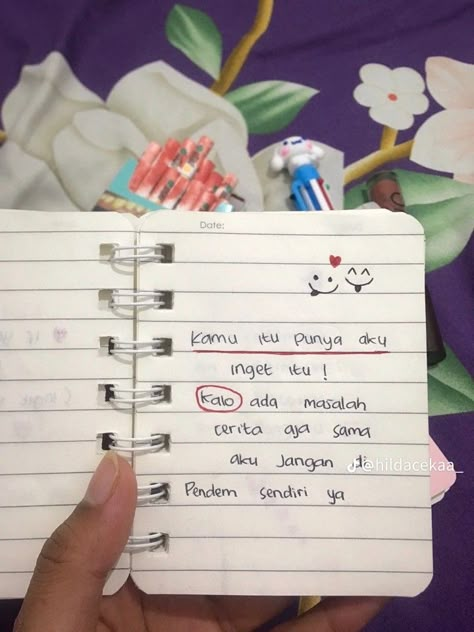 Date:
Kamu itu Punya aku
inget itu !
Kalo ada masalah
cerita aja sama
aku Jangan di
@hildacekaa_
Pendem sendiri ya